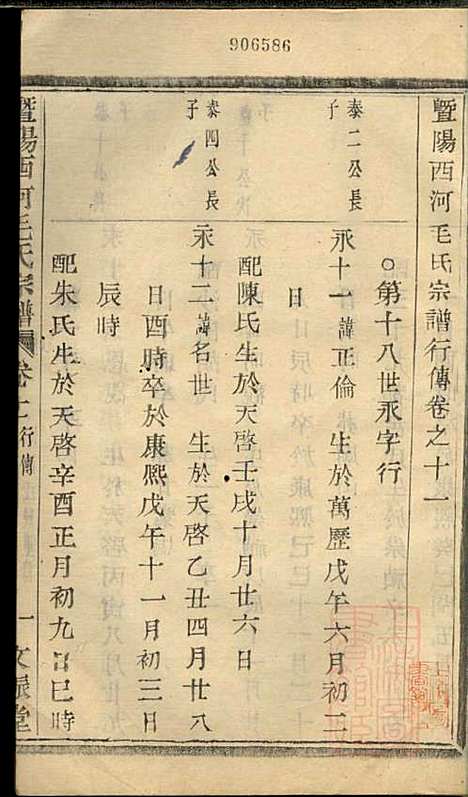 906586
暨陽西河毛氏宗譜行傳卷之十一
○第十八世永字行
泰二公長
子
永十一 諱正倫 生於萬歷戊午六月初二
日
配陳氏生於天啓壬戌十月廿六日
泰四公長
子
永十二 諱名世 生於天啓乙丑四月廿八
日酉時卒於康熙戊午十一月初三日
辰時
配朱氏生於天啓辛酉正月初九日巳時
暨陽西河毛氏宗譜 卷十一行傳 一